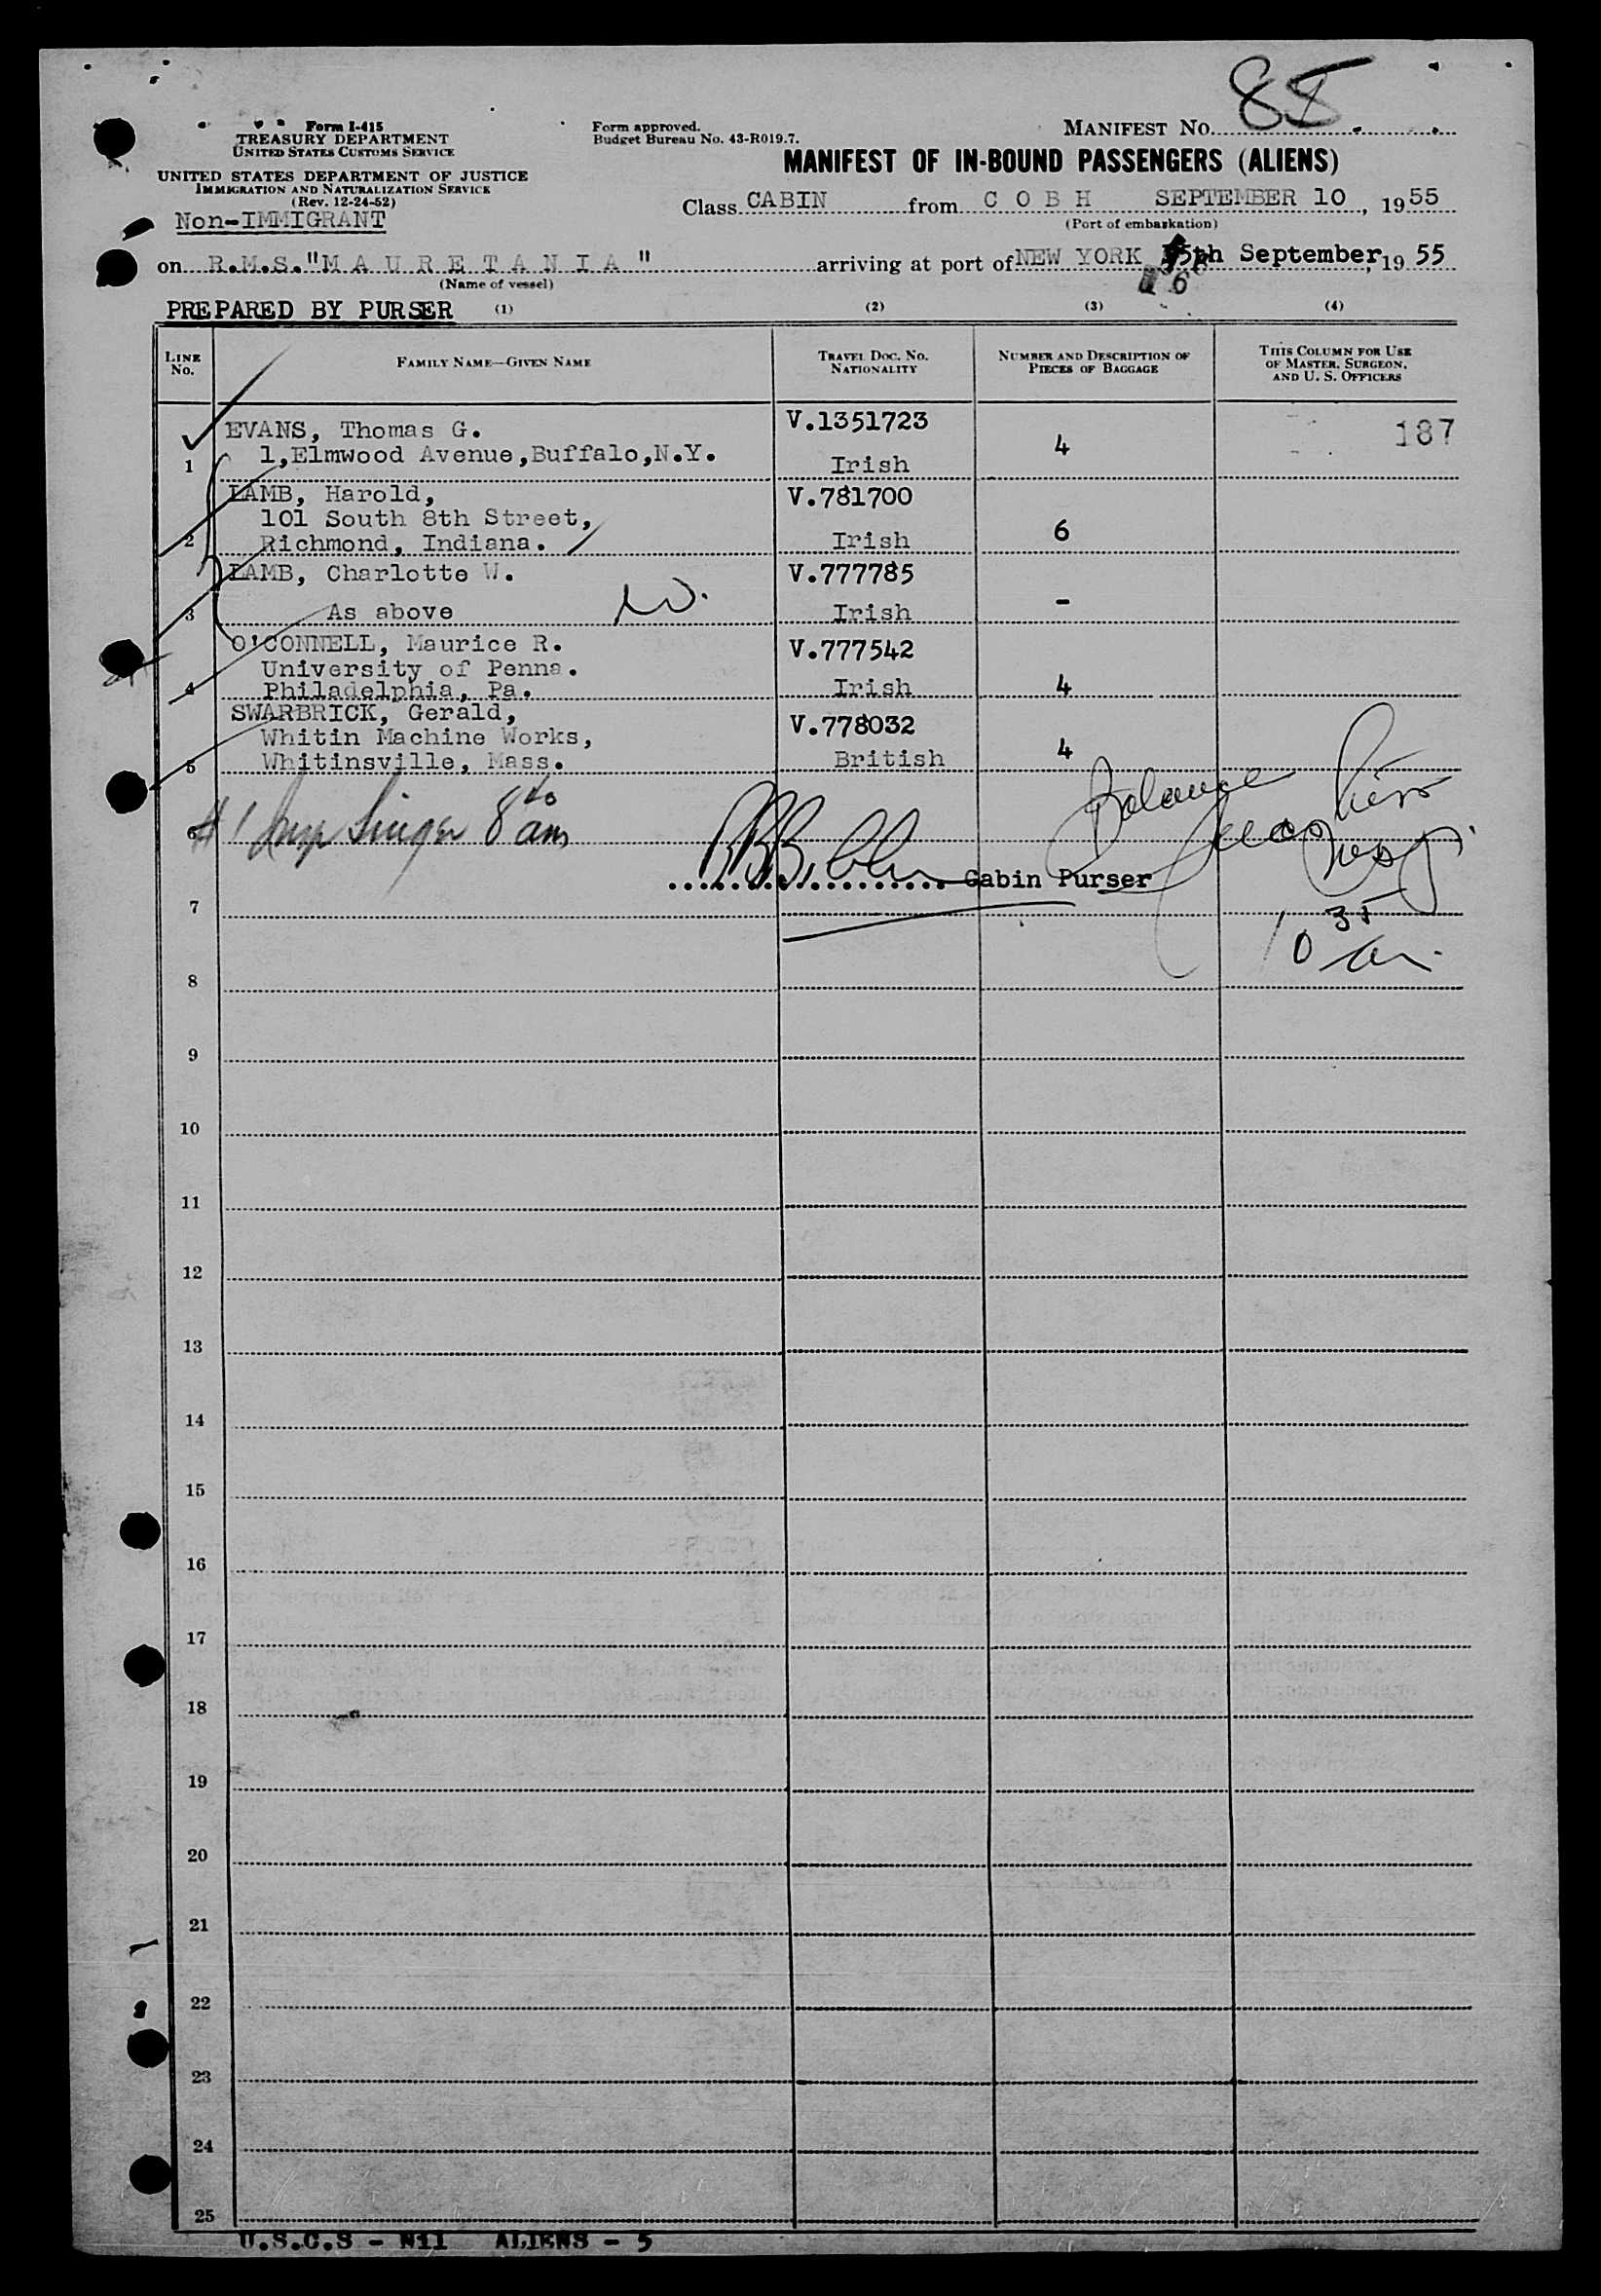 85
Form I-415
TREASURY DEPARTMENT
UNITED STATES CUSTOMS SERVICE
Form approved.
Budget Bureau No. 43-R019.7.
MANIFEST NO.
MANIFEST OF IN-BOUND PASSENGERS (ALIENS)
UNITED STATES DEPARTMENT OF JUSTICE
IMMIGRATION AND NATURALIZATION SERVICE
(Rev. 12-24-52)
Non-IMMIGRANT
Class CABIN from C O B H SEPTEMBER 10, 1955
(Port of embarkation)
on R.M.S."M A U R E T A N I A " arriving at port of NEW YORK 15th September, 1955
16
(Name of vessel)
PREPARED BY PURSER (1) (2) (3) (4)
LINE NO. FAMILY NAME—GIVEN NAME TRAVEL DOC. NO. NATIONALITY NUMBER AND DESCRIPTION OF PIECES OF BAGGAGE THIS COLUMN FOR USE OF MASTER, SURGEON, AND U. S. OFFICERS
EVANS, Thomas G. V.1351723 4 187
1 1,Elmwood Avenue,Buffalo,N.Y. Irish
LAMB, Harold, V.781700
101 South 8th Street, 6
2 Richmond, Indiana. Irish
LAMB, Charlotte W. V.777785 -
3 As above W. Irish
O'CONNELL, Maurice R. V.777542
University of Penna.
4 Philadelphia, Pa. Irish 4
SWARBRICK, Gerald, V.778032
Whitin Machine Works, 4
5 Whitinsville, Mass. British
Balance
6 #1 Insp Singer 8 am
Cabin Purser
7
10 35
am
8
9
10
11
12
13
14
15
16
17
18
19
20
21
22
23
24
25
U.S.C.S - Nil ALIENS - 5